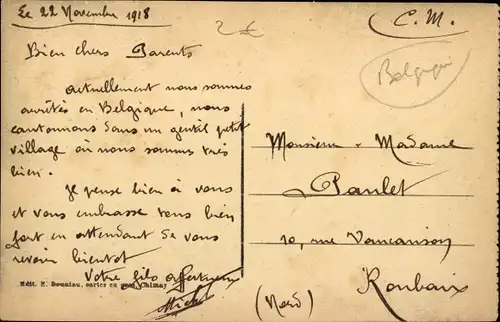 Le 22 Novembre 1918
C. M.
2 €
Belgique
Bien chers Parents
actuellement nous sommes
arrêtés en Belgique, nous
cantonnons dans un gentil petit
village où nous sommes très
bien.
Je pense bien à vous
et vous embrasse tous bien
fort en attendant de vous
revoir bientôt
Votre fils affectueux
Michel
Edit. E. Bouniau, cartes en gros, Chimay
Monsieur - Madame
Paulet
10, rue Vaucanson
Roubaix
(Nord)